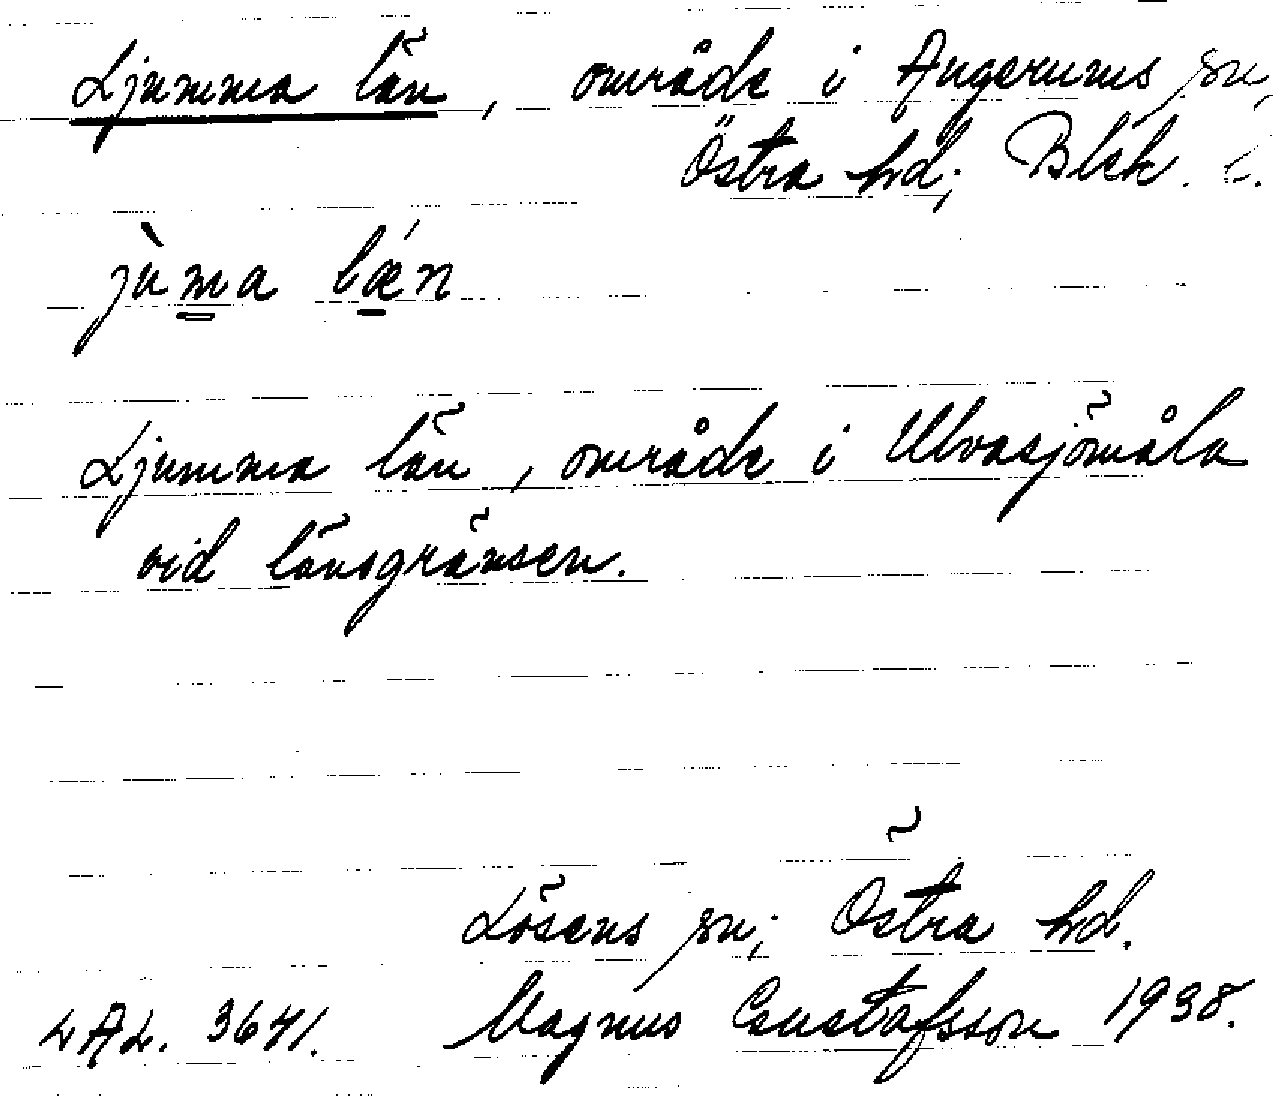 Ljumma län, område i Augerums sn,
Östra hd; Blek. l.
jùma lǽn
Ljumma län, område i Ulvasjömåla
vid länsgränsen.
Lösens sn; Östra hd.
LAL. 3641. Magnus Gustafsson 1938.